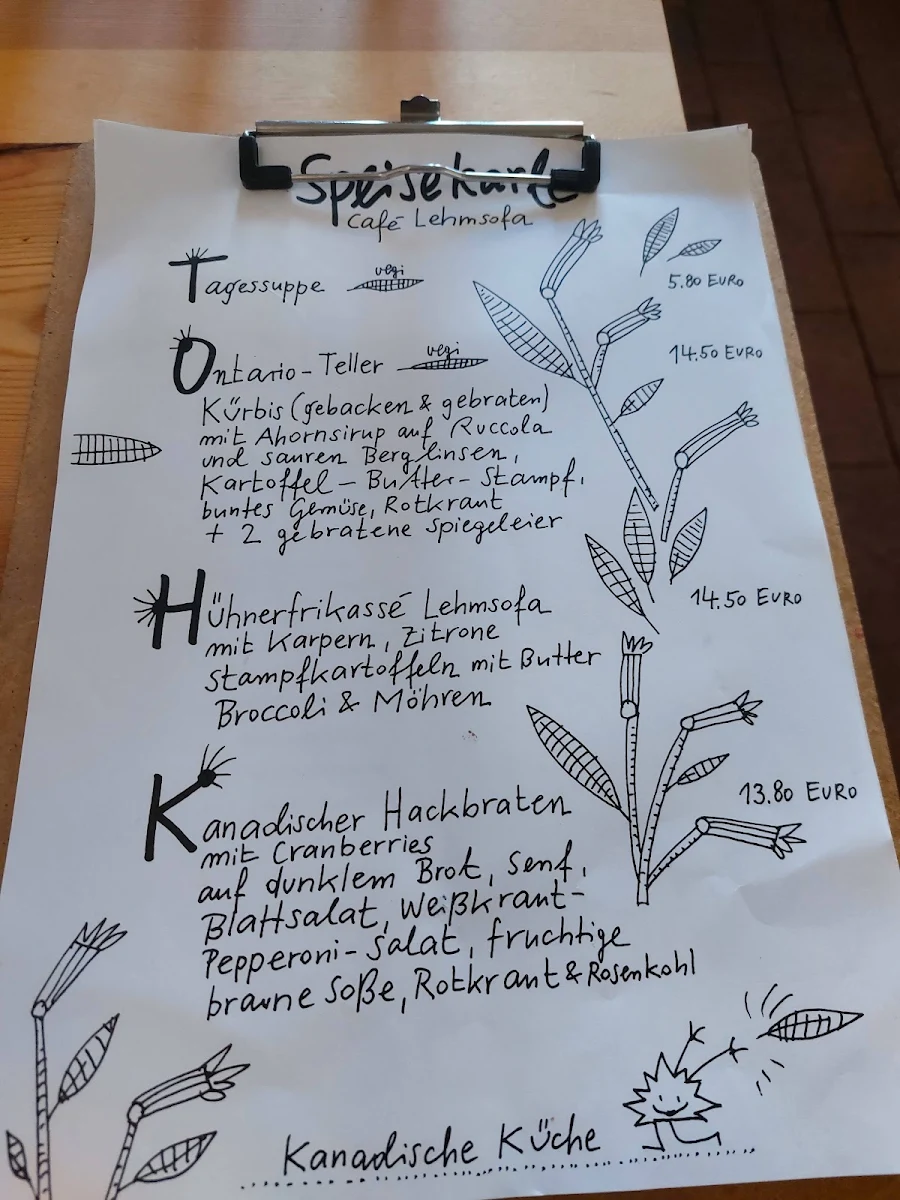 Speisekarte
Café Lehmsofa
Tagessuppe vegi 5.80 EURO
Ontario-Teller vegi 14.50 EURO
Kürbis (gebacken & gebraten)
mit Ahornsirup auf Ruccola
und sauren Berglinsen,
Kartoffel-Butter-Stampf,
buntes Gemüse, Rotkraut
+ 2 gebratene Spiegeleier
Hühnerfrikassé Lehmsofa 14.50 EURO
mit Karpern, Zitrone
Stampfkartoffeln mit Butter
Broccoli & Möhren
Kanadischer Hackbraten 13.80 EURO
mit Cranberries
auf dunklem Brot, Senf,
Blattsalat, Weißkraut-
Pepperoni-Salat, fruchtige
braune Soße, Rotkraut & Rosenkohl
Kanadische Küche